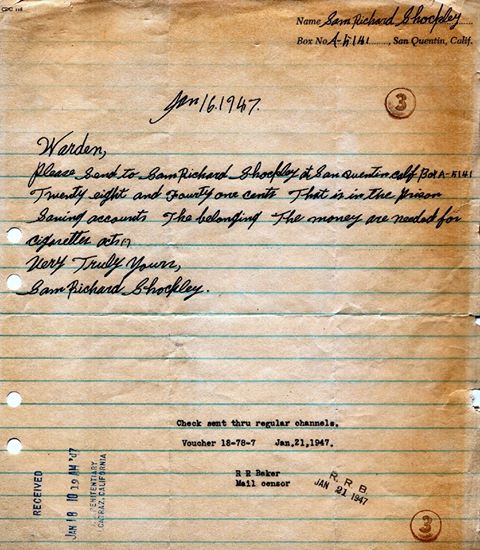 CPC 118
Name Sam Richard Shockley
Box No. A-5141, San Quentin, Calif.
Jan 16.1947.
3
Warden,
Please Send to Sam Richard Shockley at San Quentin calif Box A-5141
Twenty eight and Fourty one cents That is in the Prison
Saving accounts The belonging The money are needed for
cigarettes
Very Truly Yours,
Sam Richard Shockley.
Check sent thru regular channels.
Voucher 18-78-7 Jan,21,1947.
R R Baker
Mail censor
R. R. B.
JAN 21 1947
RECEIVED
JAN 18 10 19 AM
PENITENTIARY
ALCATRAZ, CALIFORNIA
3